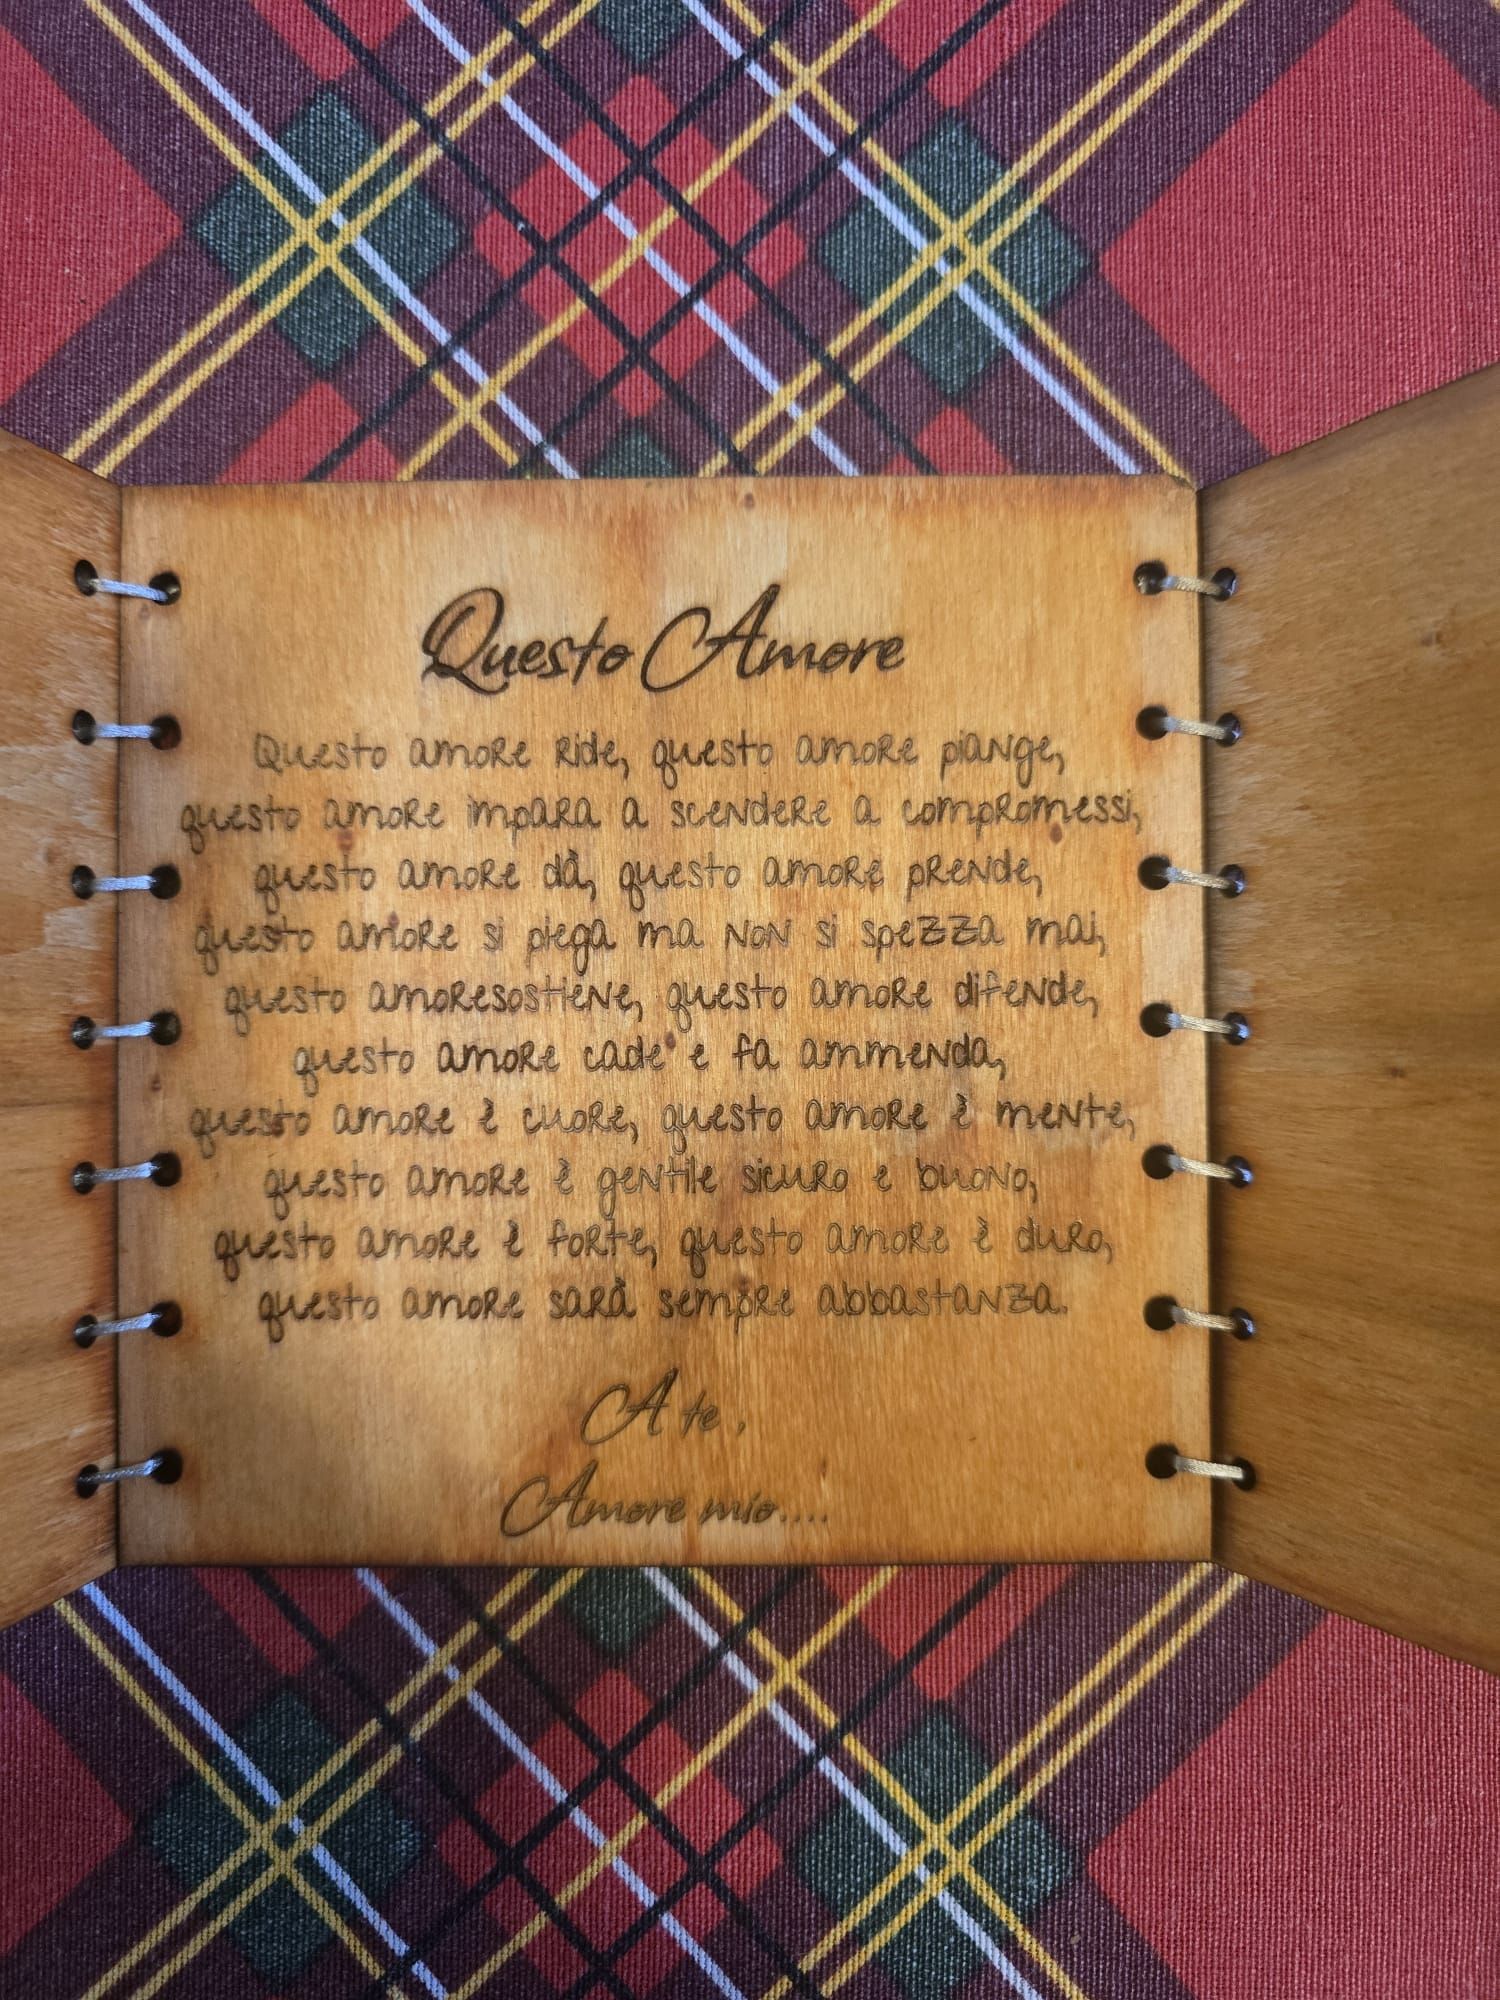 Questo Amore
Questo amore ride, questo amore piange,
questo amore impara a scendere a compromessi,
questo amore dà, questo amore prende,
questo amore si piega ma non si spezza mai,
questo amoresostiene, questo amore difende,
questo amore cade e fa ammenda,
questo amore è cuore, questo amore è mente,
questo amore è gentile sicuro e buono,
questo amore è forte, questo amore è duro,
questo amore sarà sempre abbastanza.
A te ,
Amore mio....